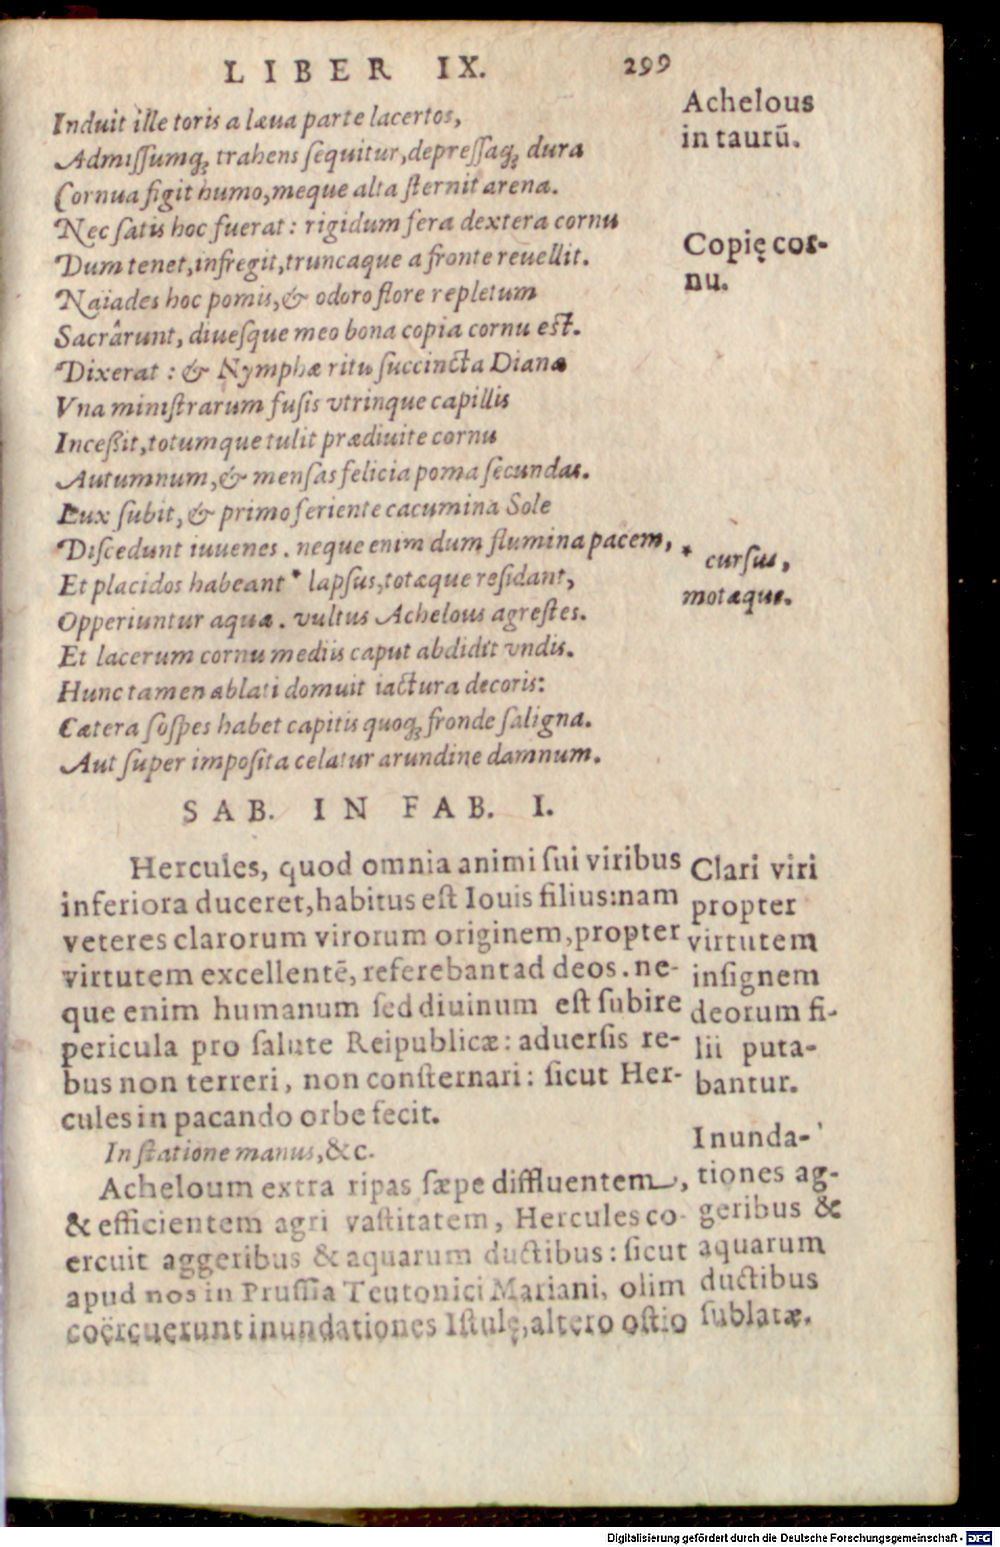 LIBER IX. 299
Induit ille toris a læua parte lacertos,
Admissumq́; trahens sequitur, depressaq́; dura
Cornua figit humo, meque alta sternit arena.
Nec satis hoc fuerat: rigidum fera dextera cornu
Dum tenet, infregit, truncaque a fronte reuellit.
Naiades hoc pomis, & odoro flore repletum
Sacrârunt, diuesque meo bona copia cornu est.
Dixerat: & Nymphæ ritu succincta Dianæ
Vna ministrarum fusis vtrinque capillis
Inceßit, totumque tulit prædiuite cornu
Autumnum, & mensas felicia poma secundas.
Lux subit, & primo feriente cacumina Sole
Discedunt iuuenes. neque enim dum flumina pacem,
Et placidos habeant * lapsus, totæque residant,
Opperiuntur aquæ. vultus Achelous agrestes.
Et lacerum cornu mediis caput abdidit vndis.
Hunc tamen ablati domuit iactura decoris:
Cætera sospes habet capitis quoq́; fronde saligna.
Aut super imposita celatur arundine damnum.
Achelous
in taurū.
Copię cor-
nu.
* cursus,
motæque.
SAB. IN FAB. I.
Hercules, quod omnia animi sui viribus
inferiora duceret, habitus est Iouis filius: nam
veteres clarorum virorum originem, propter
virtutem excellentē, referebant ad deos. ne-
que enim humanum sed diuinum est subire
pericula pro salute Reipublicæ: aduersis re-
bus non terreri, non consternari: sicut Her-
cules in pacando orbe fecit.
In statione manus, &c.
Acheloum extra ripas sæpe diffluentem,
& efficientem agri vastitatem, Hercules co-
ercuit aggeribus & aquarum ductibus: sicut
apud nos in Prussia Teutonici Mariani, olim
coërcuerunt inundationes Istulę, altero ostio
Clari viri
propter
virtutem
insignem
deorum fi-
lii puta-
bantur.
Inunda-
tiones ag-
geribus &
aquarum
ductibus
sublatæ.
Digitalisierung gefördert durch die Deutsche Forschungsgemeinschaft - DFG